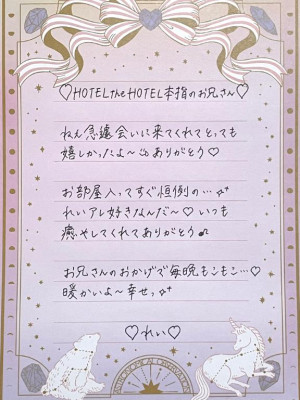 ♡HOTEL the HOTEL本指のお兄さん♡
ねえ急遽会いに来てくれてとっても
嬉しかったよ〜♨ありがとう♡
お部屋入ってすぐ恒例の…✧
れいアレ好きなんだ〜♡いつも
癒やしてくれてありがとう♪
お兄さんのおかげで毎晩もこもこ…♡
暖かいよ〜幸せっ✧
♡れい♡